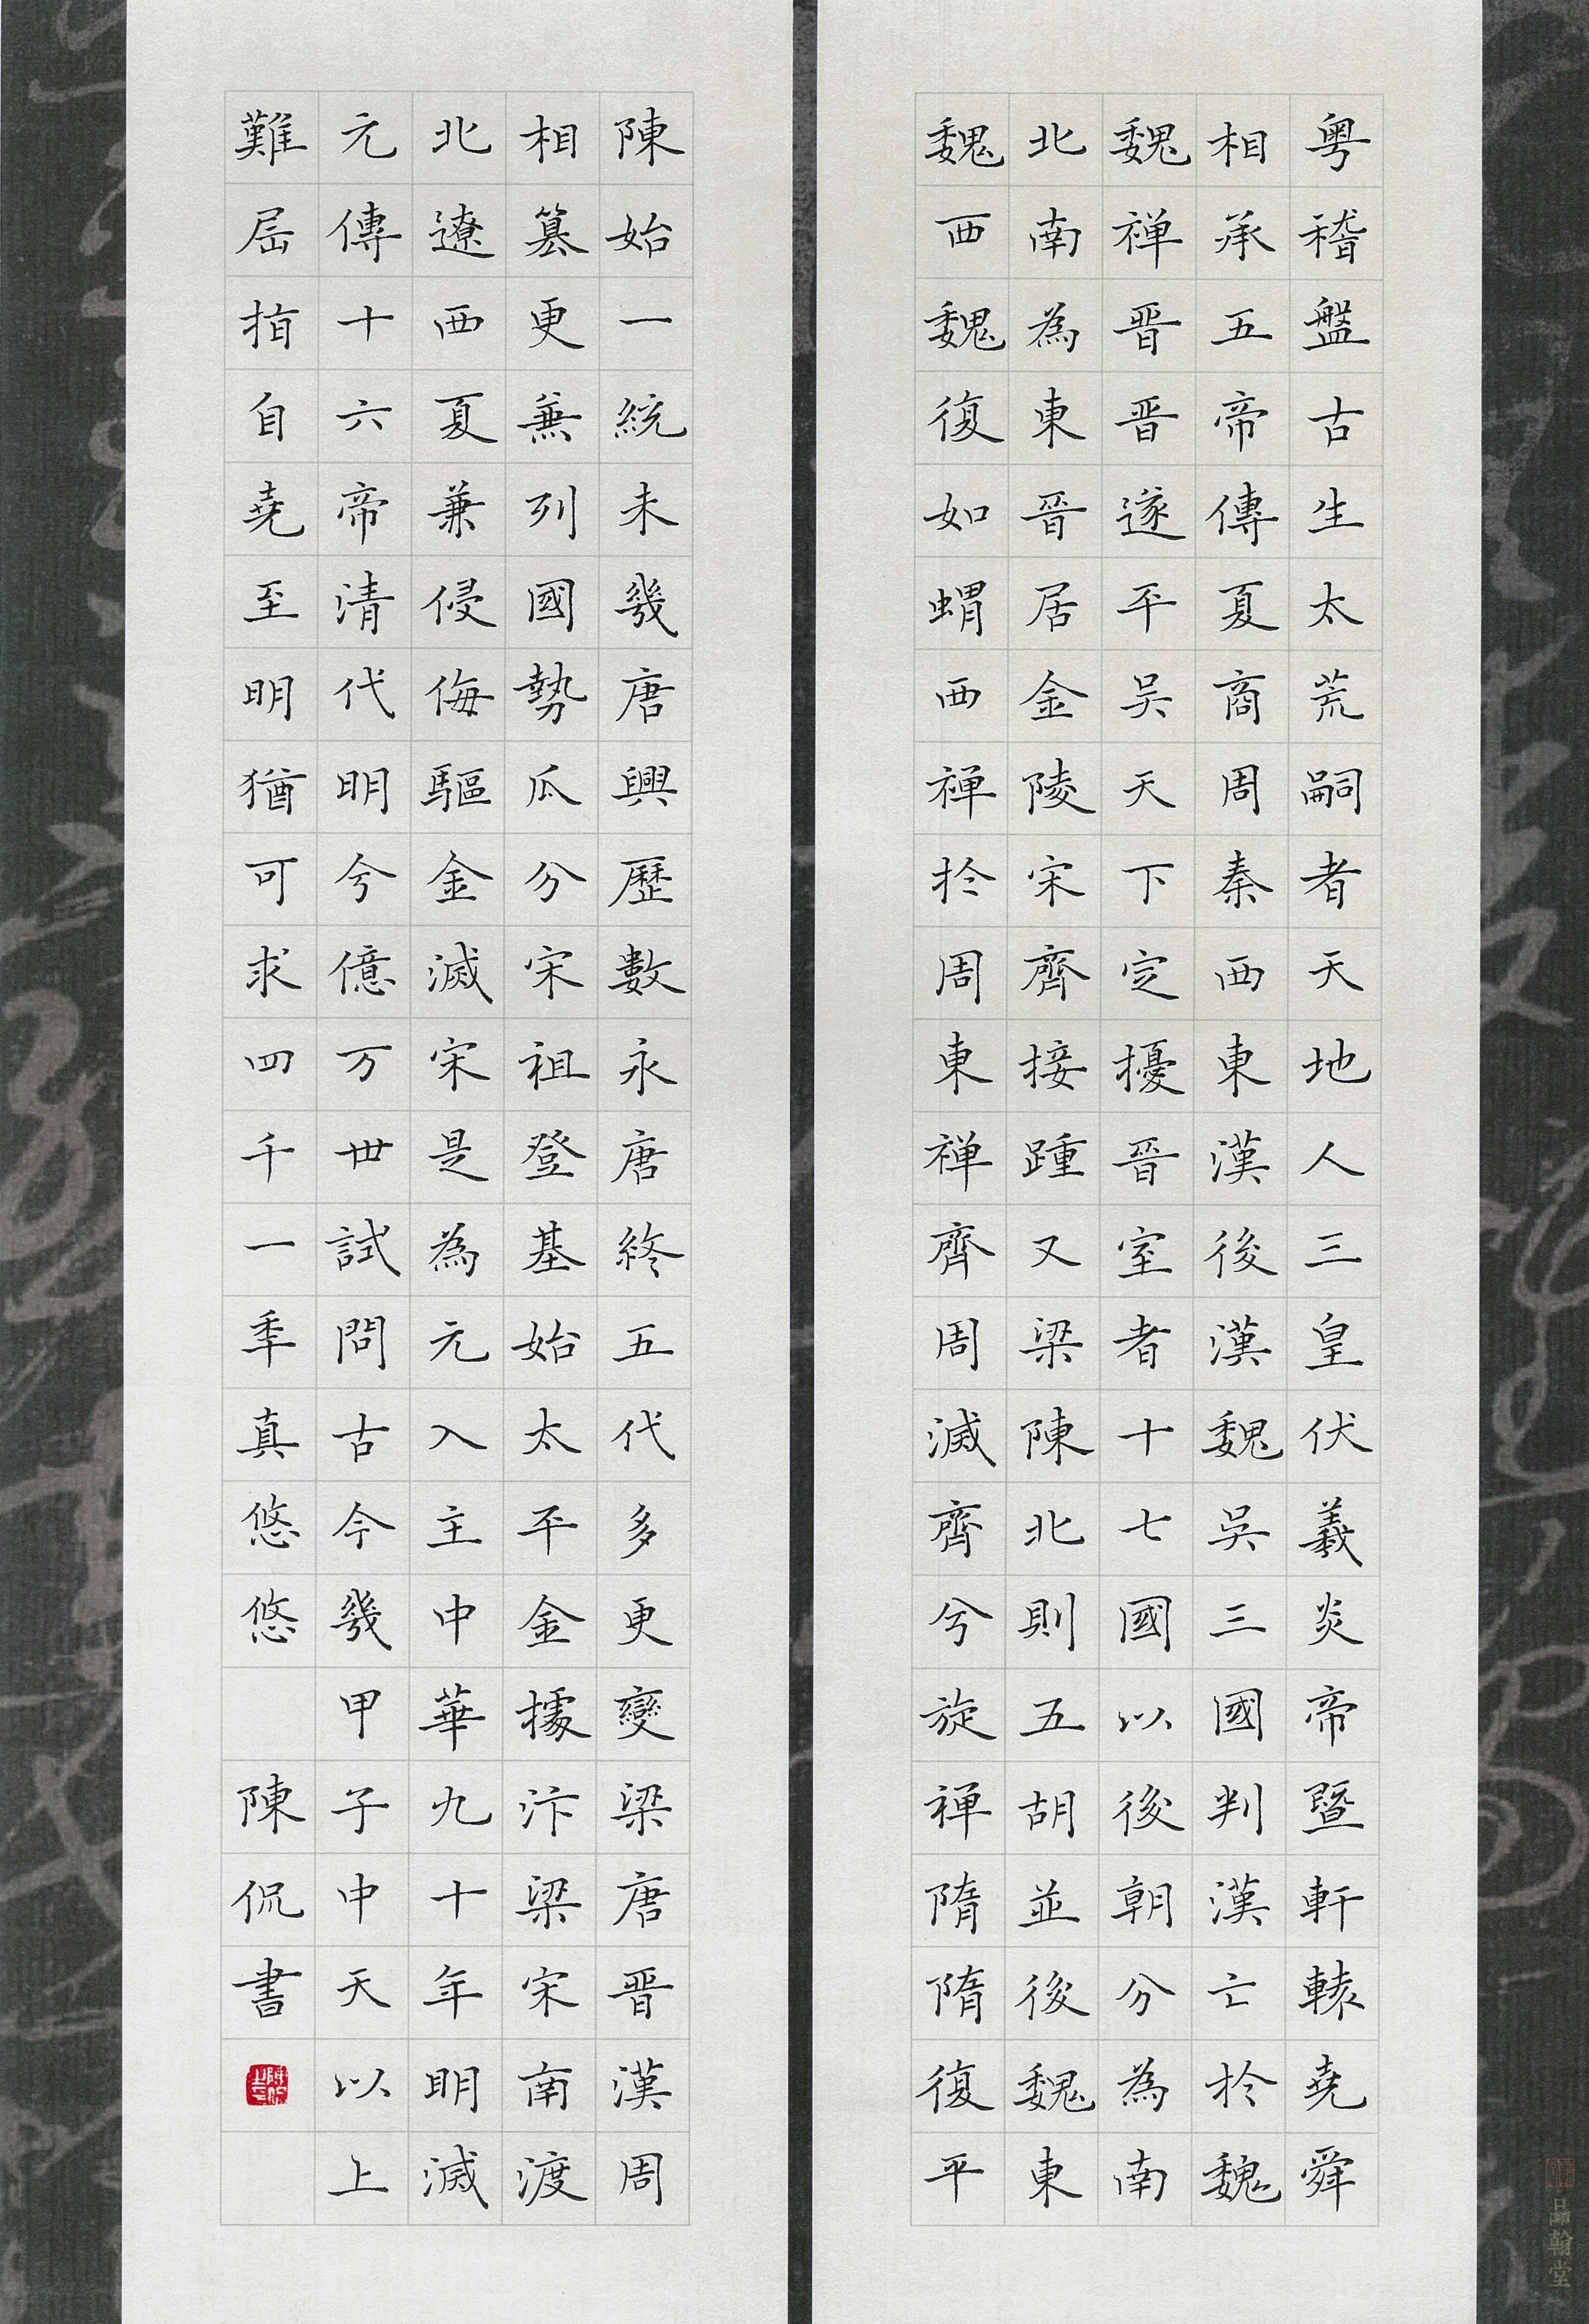 粤稽盤古生太荒嗣者天地人三皇伏羲炎帝暨軒轅堯舜
相承五帝傳夏商周秦西東漢後漢魏吳三國判漢亡於魏
魏禅晋晋遂平吴天下定擾晋室者十七國以後朝分為南
北南為東晋居金陵宋齊接踵又梁陳北則五胡並後魏東
魏西魏復如蝟西禅於周東禅齊周滅齊兮旋禅隋隋復平
陳始一統未幾唐興歷數永唐終五代多更變梁唐晋漢周
相篡更兼列國勢瓜分宋祖登基始太平金據汴梁宋南渡
北遼西夏兼侵侮驅金滅宋是為元入主中華九十年明滅
元傳十六帝清代明兮億万世試問古今幾甲子中天以上
難屈指自堯至明猶可求四千一季真悠悠 陳侃書
品翰堂